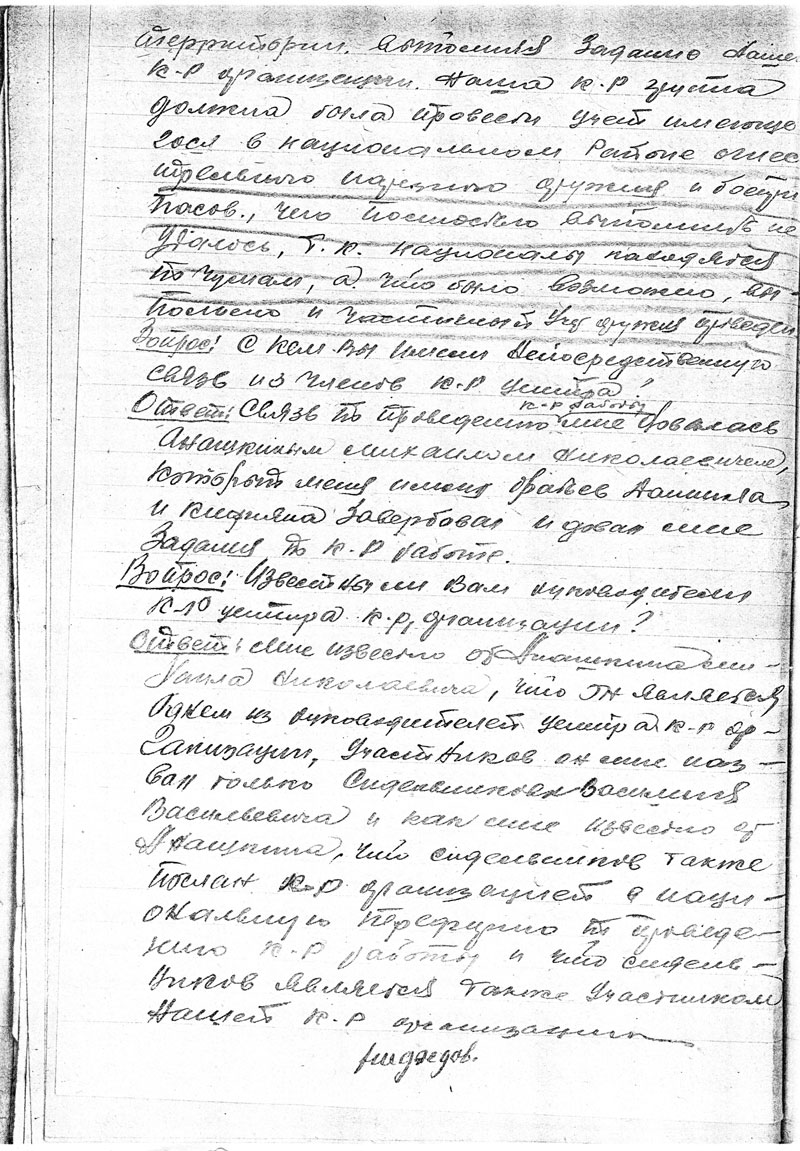 территории. Выполняя задание наше
К-Р организации. Наша К-Р группа
должна была провести учет имеюще
гося в национальном районе огнес
трельного нарезного оружия и боепри
пасов., чего полностью выполнить не
удалось, т.к. националы находятся
по чумам, а что было возможно, вы-
полнено и частичный учет оружия проведен
Вопрос: С кем вы имели непосредственную
связь из членов К-Р центра?
К-Р работы
Ответ: Связь по проведению мне давалась
Анашкиным Михаилом Николаевичем,
который меня и моих братьев Даниила
и завербовал и давал мне
задания по К-Р работе.
Вопрос: Известны ли Вам руководители
центра К-Р, организации?
Ответ: Мне известно от Анашкина Ми-
хаила Николаевича, что он является
одним из руководителей центра К-Р ор-
ганизации, участников он мне наз-
вал только Сидельникова Василия
Васильевича и как мне известно от
Анашкина, что Сидельников также
послан К-Р организацией в наци-
ональную по проведе-
нию К-Р работы и что Сидель-
ников является также участником
нашей К-Р организации